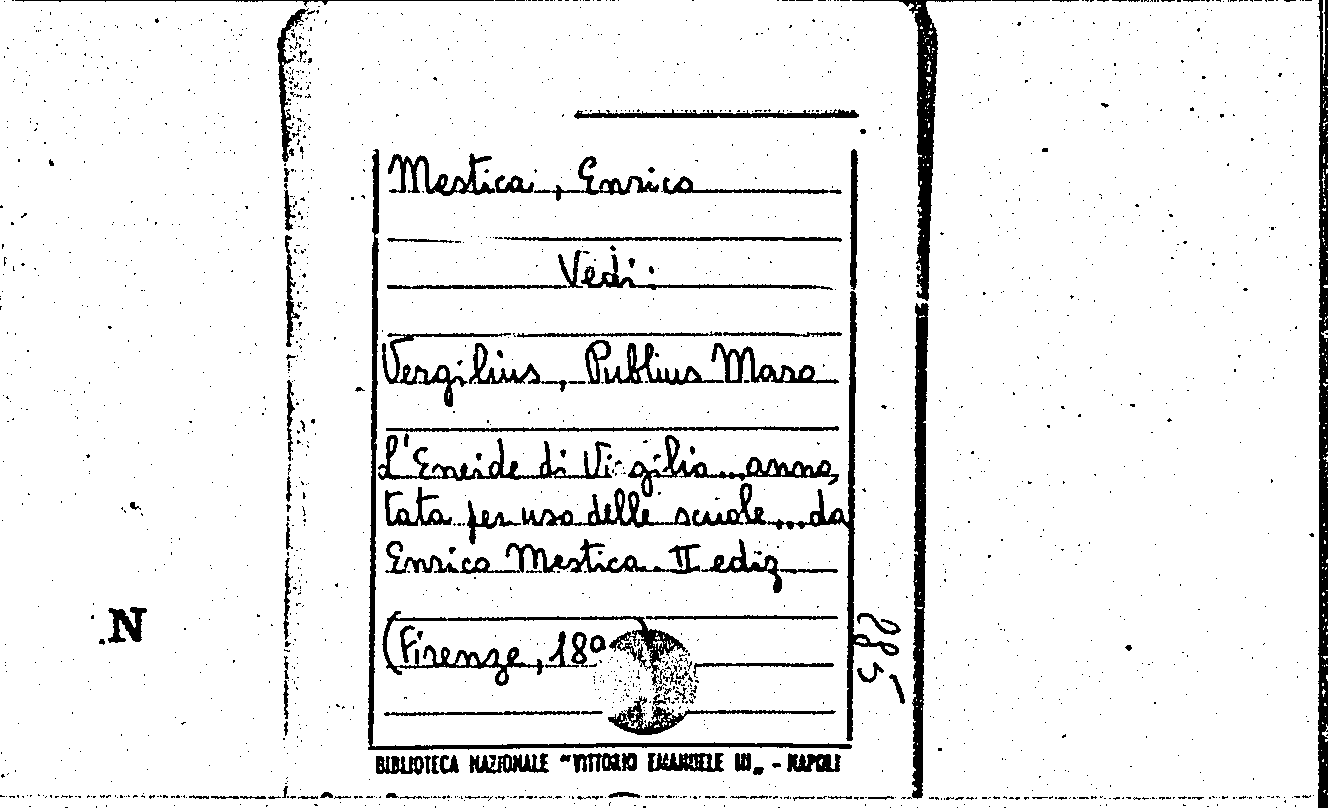 Mestica, Enrico
Vedi:
Vergilius, Publius Maro
L'Eneide di Virgilio...anno,
tata per uso delle scuole...da
Enrico Mestica. II ediz
(Firenze, 18
N
285
BIBLIOTECA NAZIONALE "VITTORIO EMANUELE III„ - NAPOLI